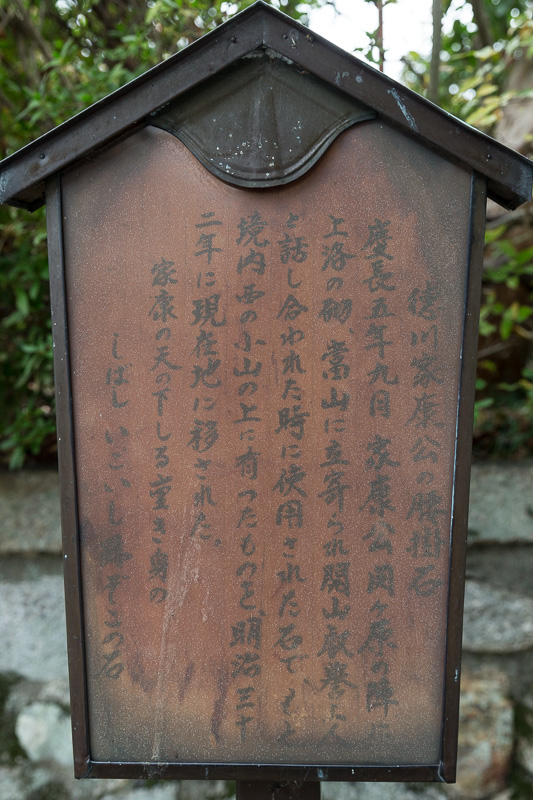 徳川家康公の腰掛石
慶長五年九月 家康公関ヶ原の陣に
上洛の砌、當山に立寄られ開山叡誉上人
と話し合われた時に使用された石で、もと
境内西の小山の上に有ったものを、明治三十
二年に現在地に移された。
家康の天の下しる重き身の
しばし いこいし 腰かけの石